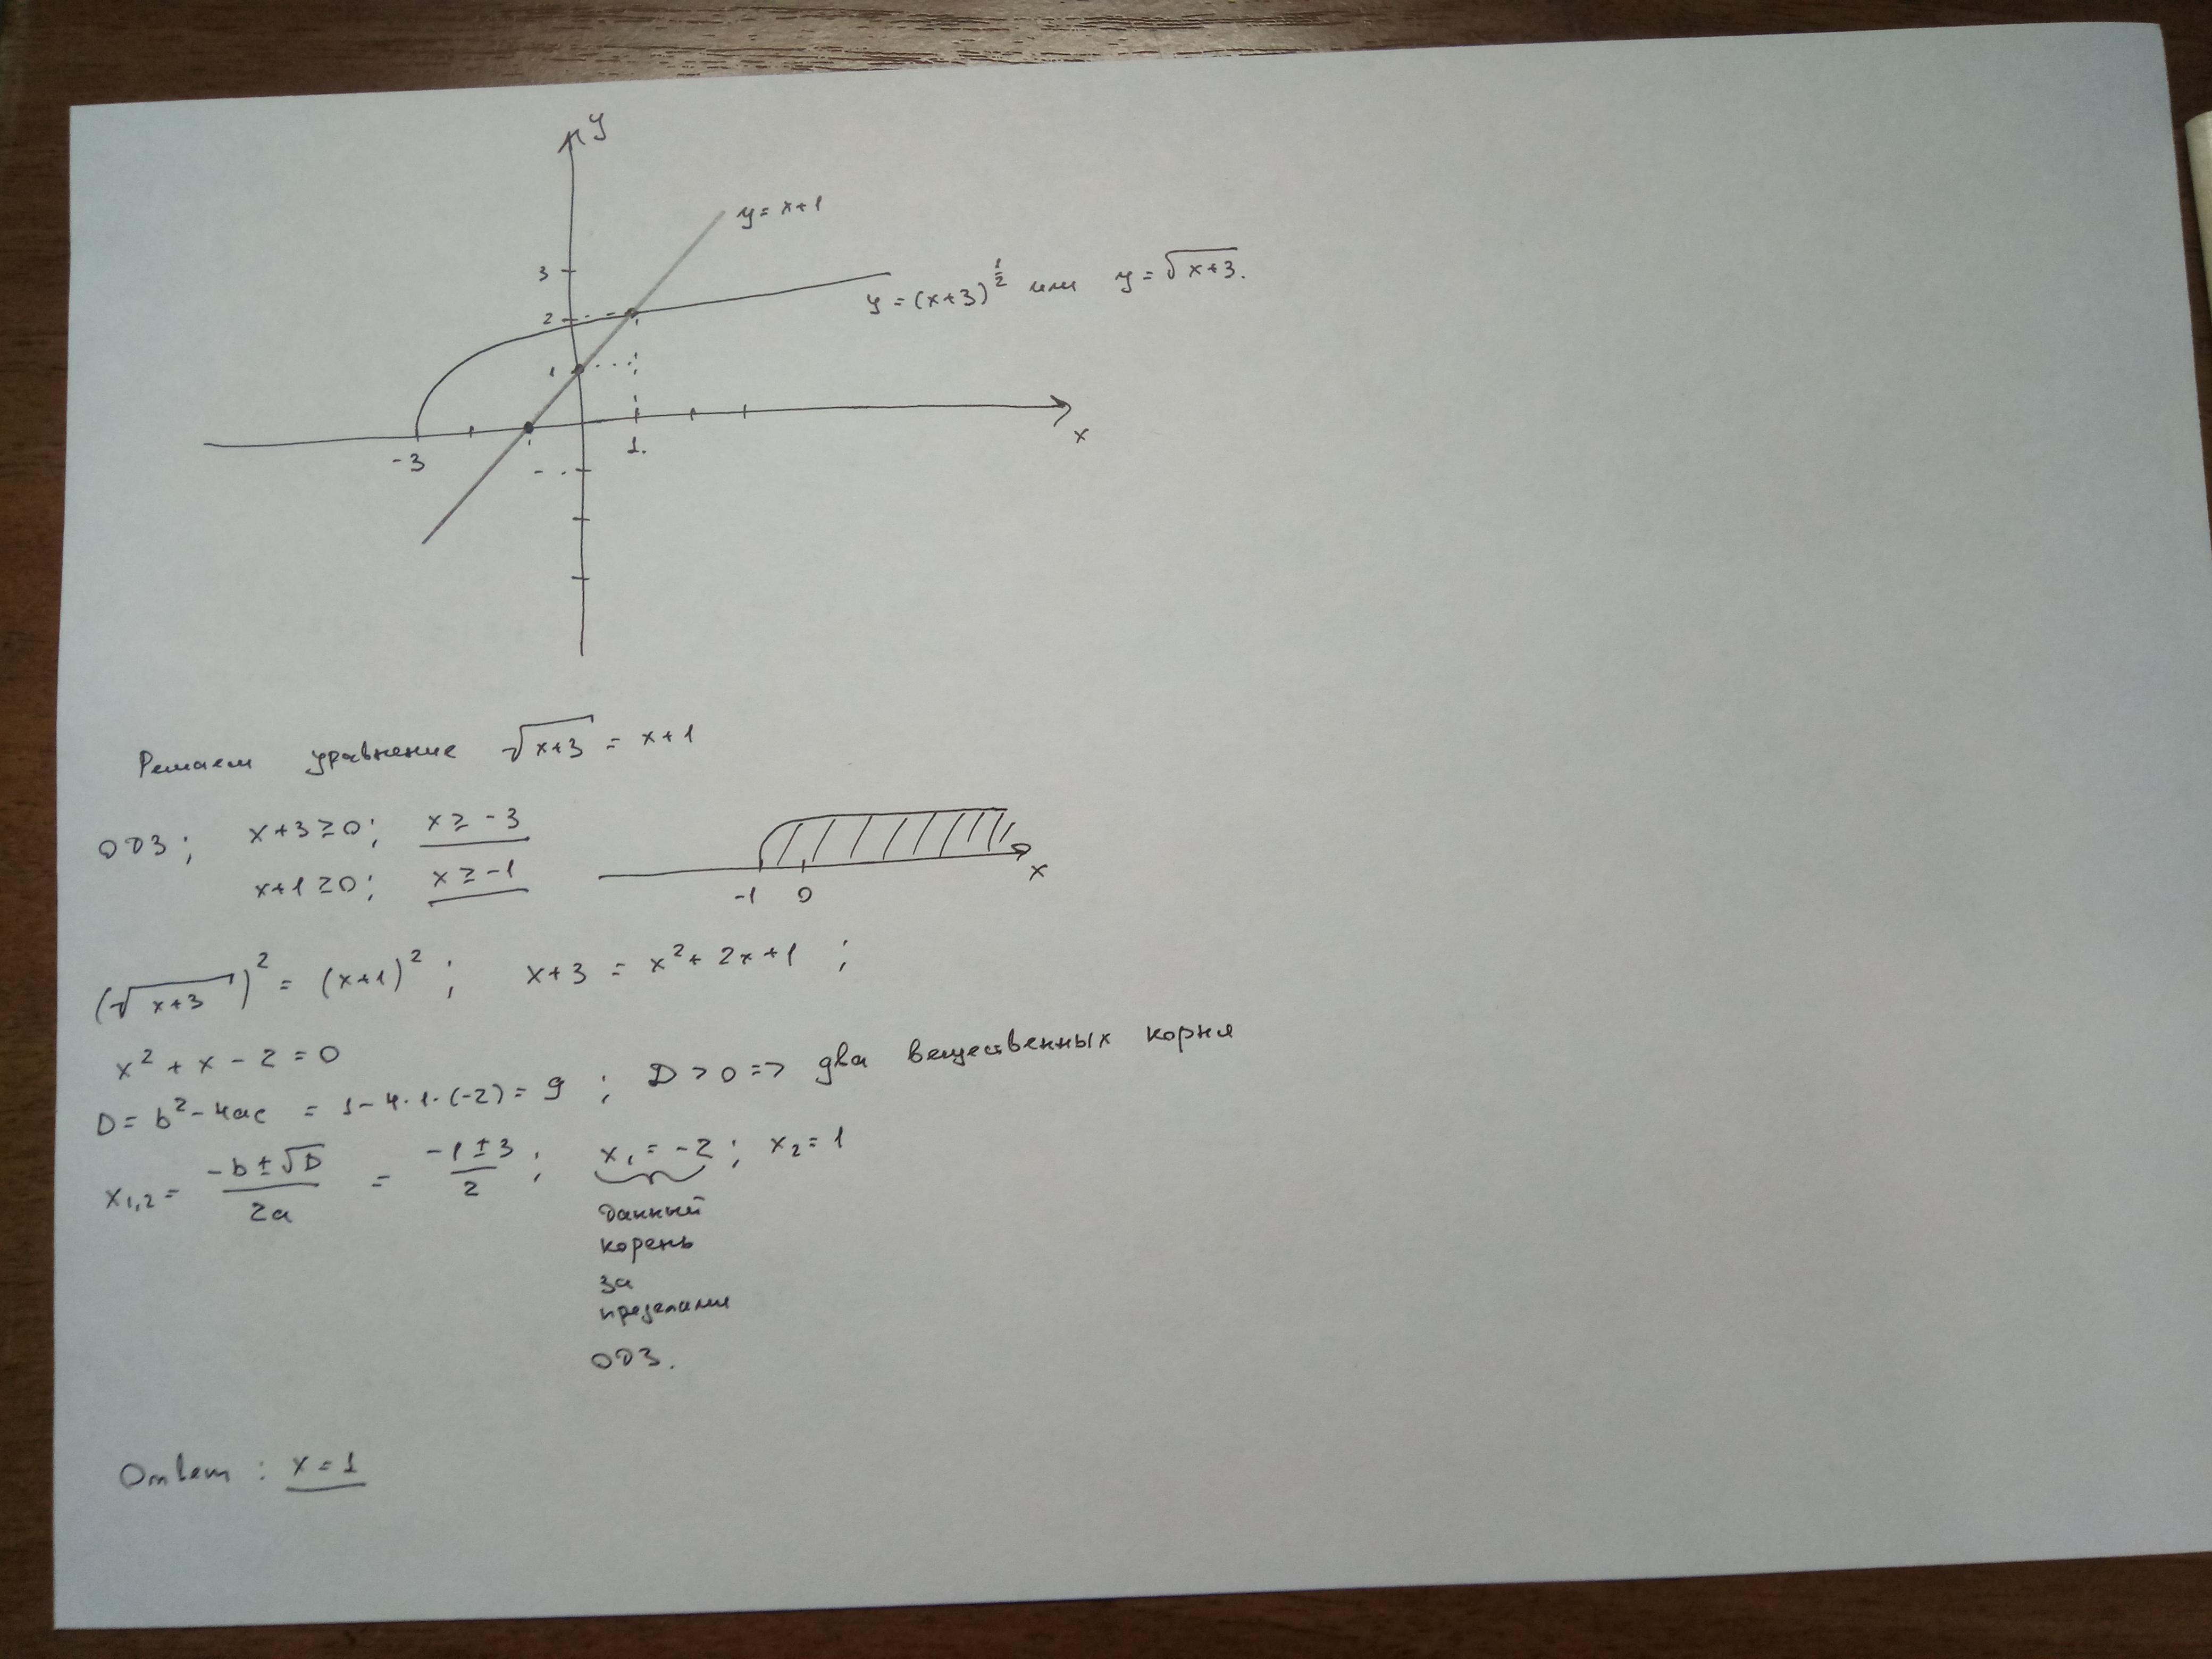 y
y = x+1
3
y = (x+3)^½ или y = √(x+3).
2
1
x
-3
1.
Решаем уравнение √(x+3) = x+1
ОДЗ; x+3 ≥ 0; x ≥ -3
x+1 ≥ 0; x ≥ -1
x
-1 0
(√(x+3))² = (x+1)²; x+3 = x² + 2x+1 ;
x² + x - 2 = 0
D = b² - 4ac = 1 - 4·1·(-2) = 9 ; D > 0 => два вещественных корня
x₁,₂ = (-b ± √D)/2a = (-1 ± 3)/2 ; x₁ = -2 ; x₂ = 1
данный
корень
за
пределами
ОДЗ.
Ответ : x = 1